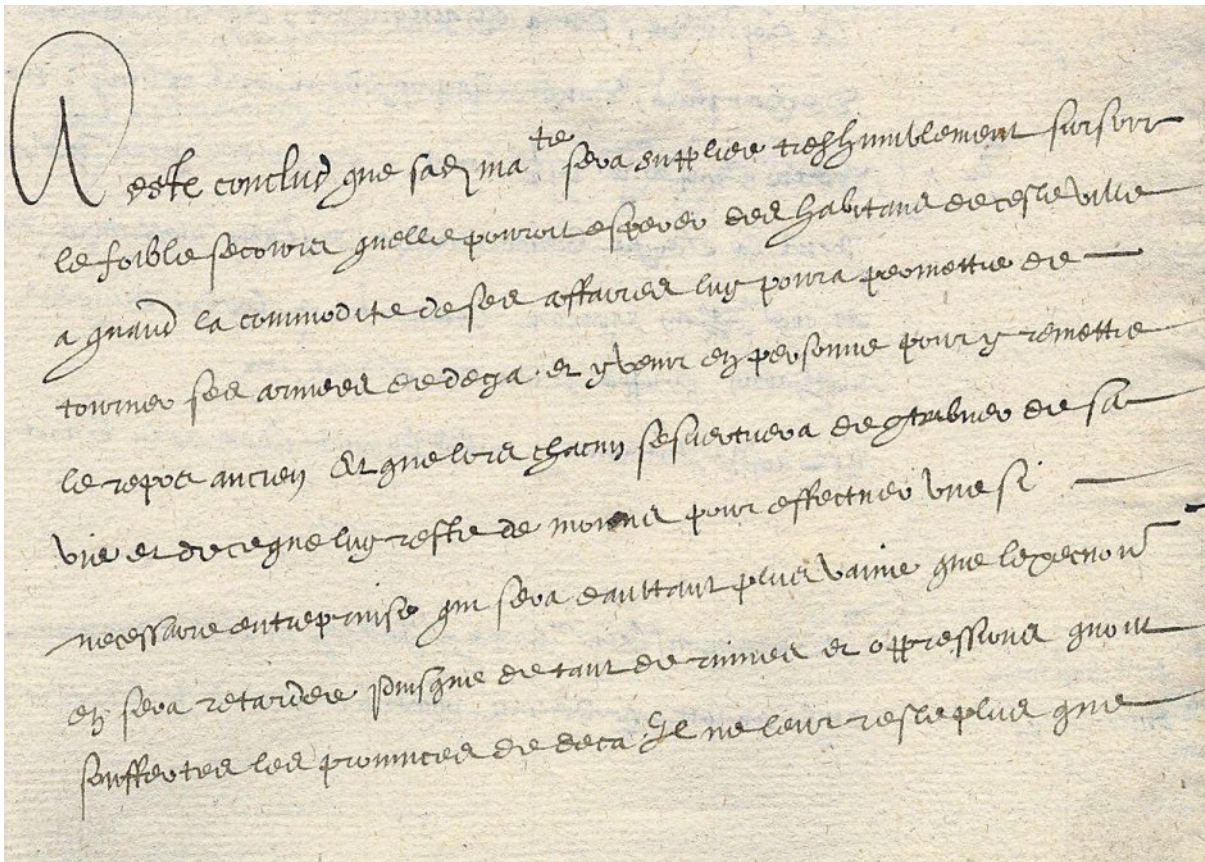 A esté conclud que sad. ma te sera suppliee treshumblement sursoir
le foible secours quelle pouroit esperer des habitans de ceste ville
a quand la commodite de ses affaires luy poura permettre de
tourner ses armees de deça. et y venir en personne pour y remettre
le repos ancien Et que lors chacun sesvertuera de contribuer de sa
vie et de ce que luy reste de moiens pour effectuer une si
necessaire entreprinse qui sera dauttant plus vaine que lexecuon
en sera retardee puisque de tant de ruines et oppressions quont
souffertes les provinces de deca Il ne leur reste plus que